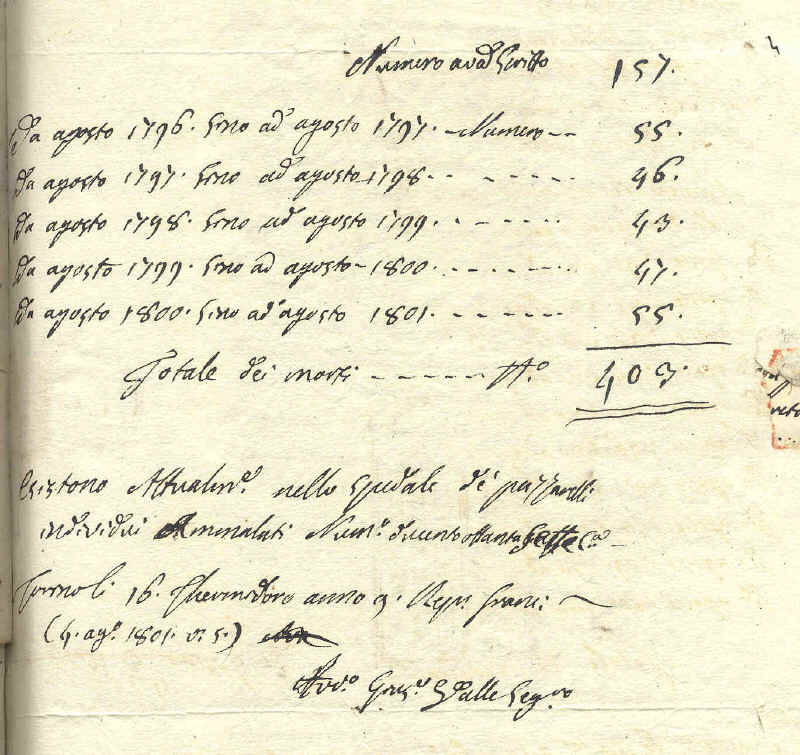 Numero avad Scritto 157.
Da agosto 1796. sino ad agosto 1797. - Numero - - 55.
Da agosto 1797. sino ad agosto 1798 - - - - - - - 46.
Da agosto 1798. sino ad agosto 1799. - - - - - - 43.
Da agosto 1799. sino ad agosto - 1800. - - - - - - 47.
Da agosto 1800. sino ad agosto 1801. - - - - - - 55.
Totale dei morti - - - - - - N.o 403.
Esistono Attualm.e nello Spedale de' pazzarelli
individui Ammalati Num.o ducento ottanta
16. Thermidoro anno 9. Rep. Franc.
(4. ag.o 1801. v. s.)